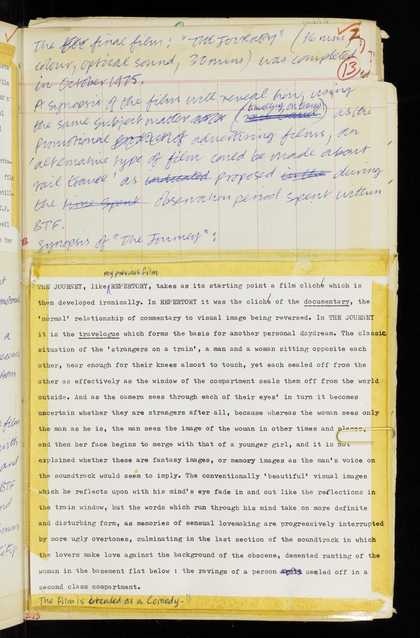 The final film: "THE JOURNEY" (16 mm
colour, optical sound, 30 mins) was completed
in October 1975.
2
13
A synopsis of the film will reveal how, using
the same subject matter (travelling on trains) as the
promotional advertising films, an
alternative type of film could be made about
rail travel as indicated proposed during
the time spent observation period spent within
BTF.
Synopsis of "The Journey":
my previous film
THE JOURNEY, like REPERTORY, takes as its starting point a film cliché which is
then developed ironically. In REPERTORY it was the cliché of the documentary, the
'normal' relationship of commentary to visual image being reversed. In THE JOURNEY
it is the travelogue which forms the basis for another personal daydream. The classic
situation of the 'strangers on a train', a man and a woman sitting opposite each
other, near enough for their knees almost to touch, yet each sealed off from the
other as effectively as the window of the compartment seals them off from the world
outside. And as the camera sees through each of their eyes' in turn it becomes
uncertain whether they are strangers after all, because whereas the woman sees only
the man as he is, the man sees the image of the woman in other times and places,
and then her face begins to merge with that of a younger girl, and it is not
explained whether these are fantasy images, or memory images as the man's voice on
the soundtrack would seem to imply. The conventionally 'beautiful' visual images
which he reflects upon with his mind's eye fade in and out like the reflections in
the train window, but the words which run through his mind take on more definite
and disturbing form, as memories of sensual lovemaking are progressively interrupted
by more ugly overtones, culminating in the last section of the soundtrack in which
the lovers make love against the background of the obscene, demented ranting of the
woman in the basement flat below : the ravings of a person sealed off in a
second class compartment.
The film is intended as a Comedy.